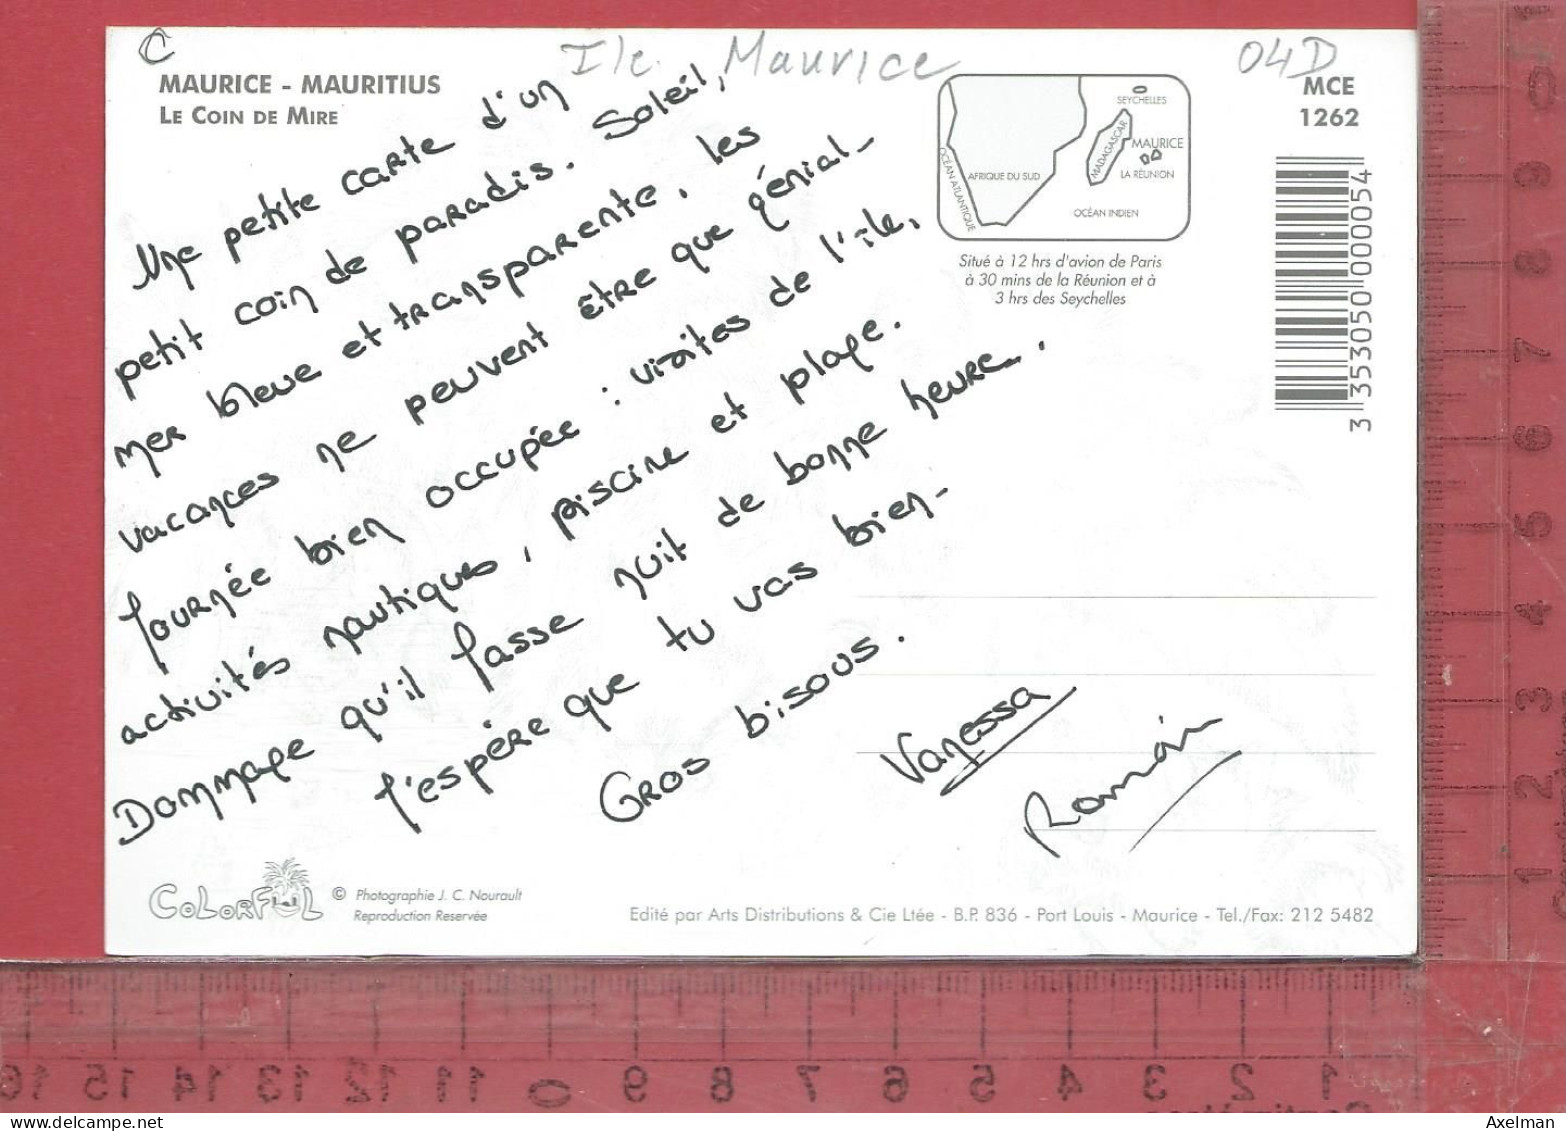 C
Ile Maurice
04D
MAURICE - MAURITIUS
LE COIN DE MIRE
MCE
1262
SEYCHELLES
MADAGASCAR
MAURICE
LA RÉUNION
AFRIQUE DU SUD
OCÉAN ATLANTIQUE
OCÉAN INDIEN
Situé à 12 hrs d'avion de Paris
à 30 mins de la Réunion et à
3 hrs des Seychelles
3 353050 000054
Une petite carte d'un
petit coin de paradis. Soleil,
mer bleue et transparente, les
vacances ne peuvent être que génial-
Journée bien occupée : visites de l'île,
activités nautiques, piscine et plage.
Dommage qu'il fasse nuit de bonne heure.
J'espère que tu vas bien-
Gros bisous.
Vanessa
Romain
COLORFUL
© Photographie J. C. Nourault
Reproduction Reservée
Edité par Arts Distributions & Cie Ltée - B.P. 836 - Port Louis - Maurice - Tel./Fax: 212 5482
9
8
7
6
5
4
3
2
1
16 15 14 13 12 11 0 9 8 7 6 5 4 3 2 1
www.delcampe.net
Axelman